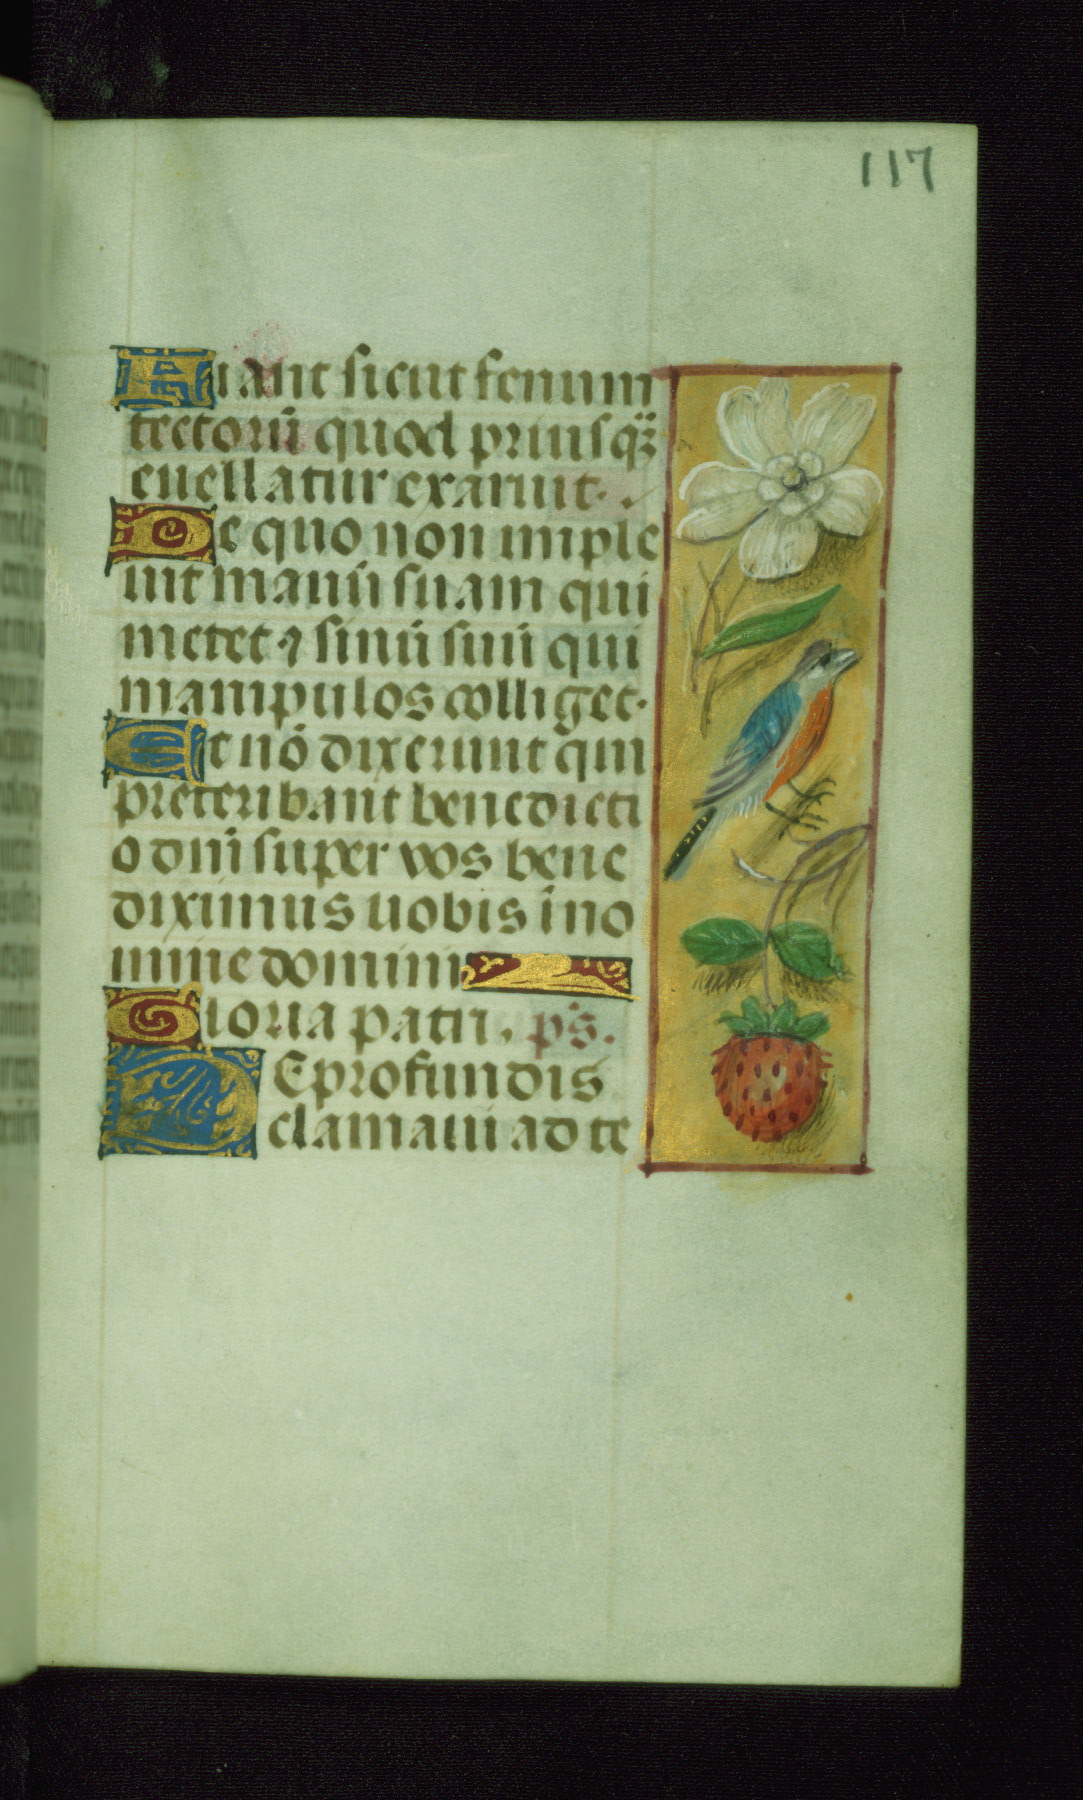 117
Fiant sicut fenum
tectorū quod priusq̄ȝ
euellatur exaruit.
De quo non imple
uit manū suam qui
metet ⁊ sinū suū qui
manipulos colliget.
Et nō dixerunt qui
preteribant benedicti
o dn̄i super vos bene
diximus uobis ī no
mine domini
Gloria patri. ps̄.
De profundis
clamaui ad te